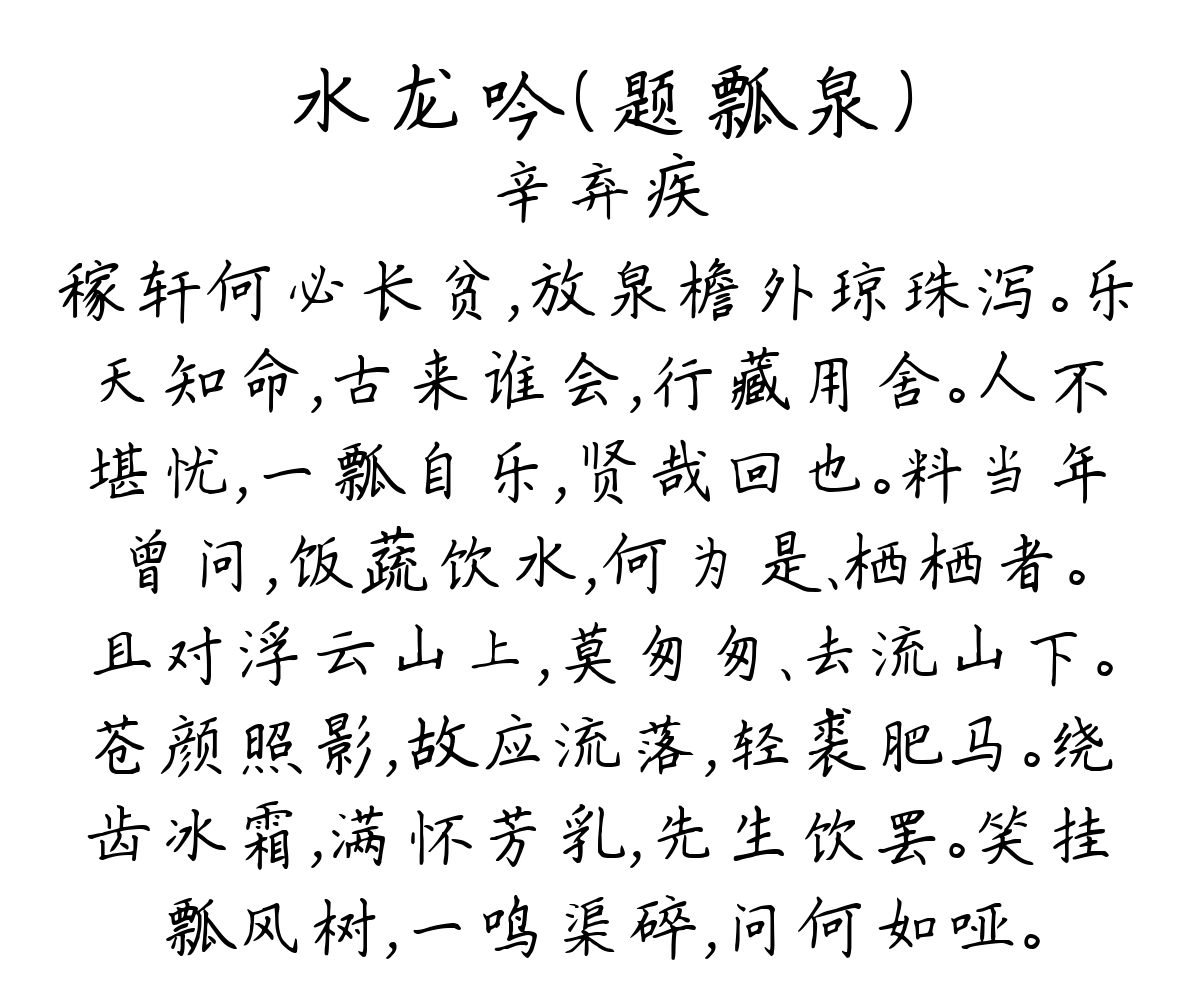 水龙吟(题瓢泉)
辛弃疾
稼轩何必长贫,放泉檐外琼珠泻。乐
天知命,古来谁会,行藏用舍。人不
堪忧,一瓢自乐,贤哉回也。料当年
曾问,饭蔬饮水,何为是、栖栖者。
且对浮云山上,莫匆匆、去流山下。
苍颜照影,故应流落,轻裘肥马。绕
齿冰霜,满怀芳乳,先生饮罢。笑挂
瓢风树,一鸣渠碎,问何如哑。